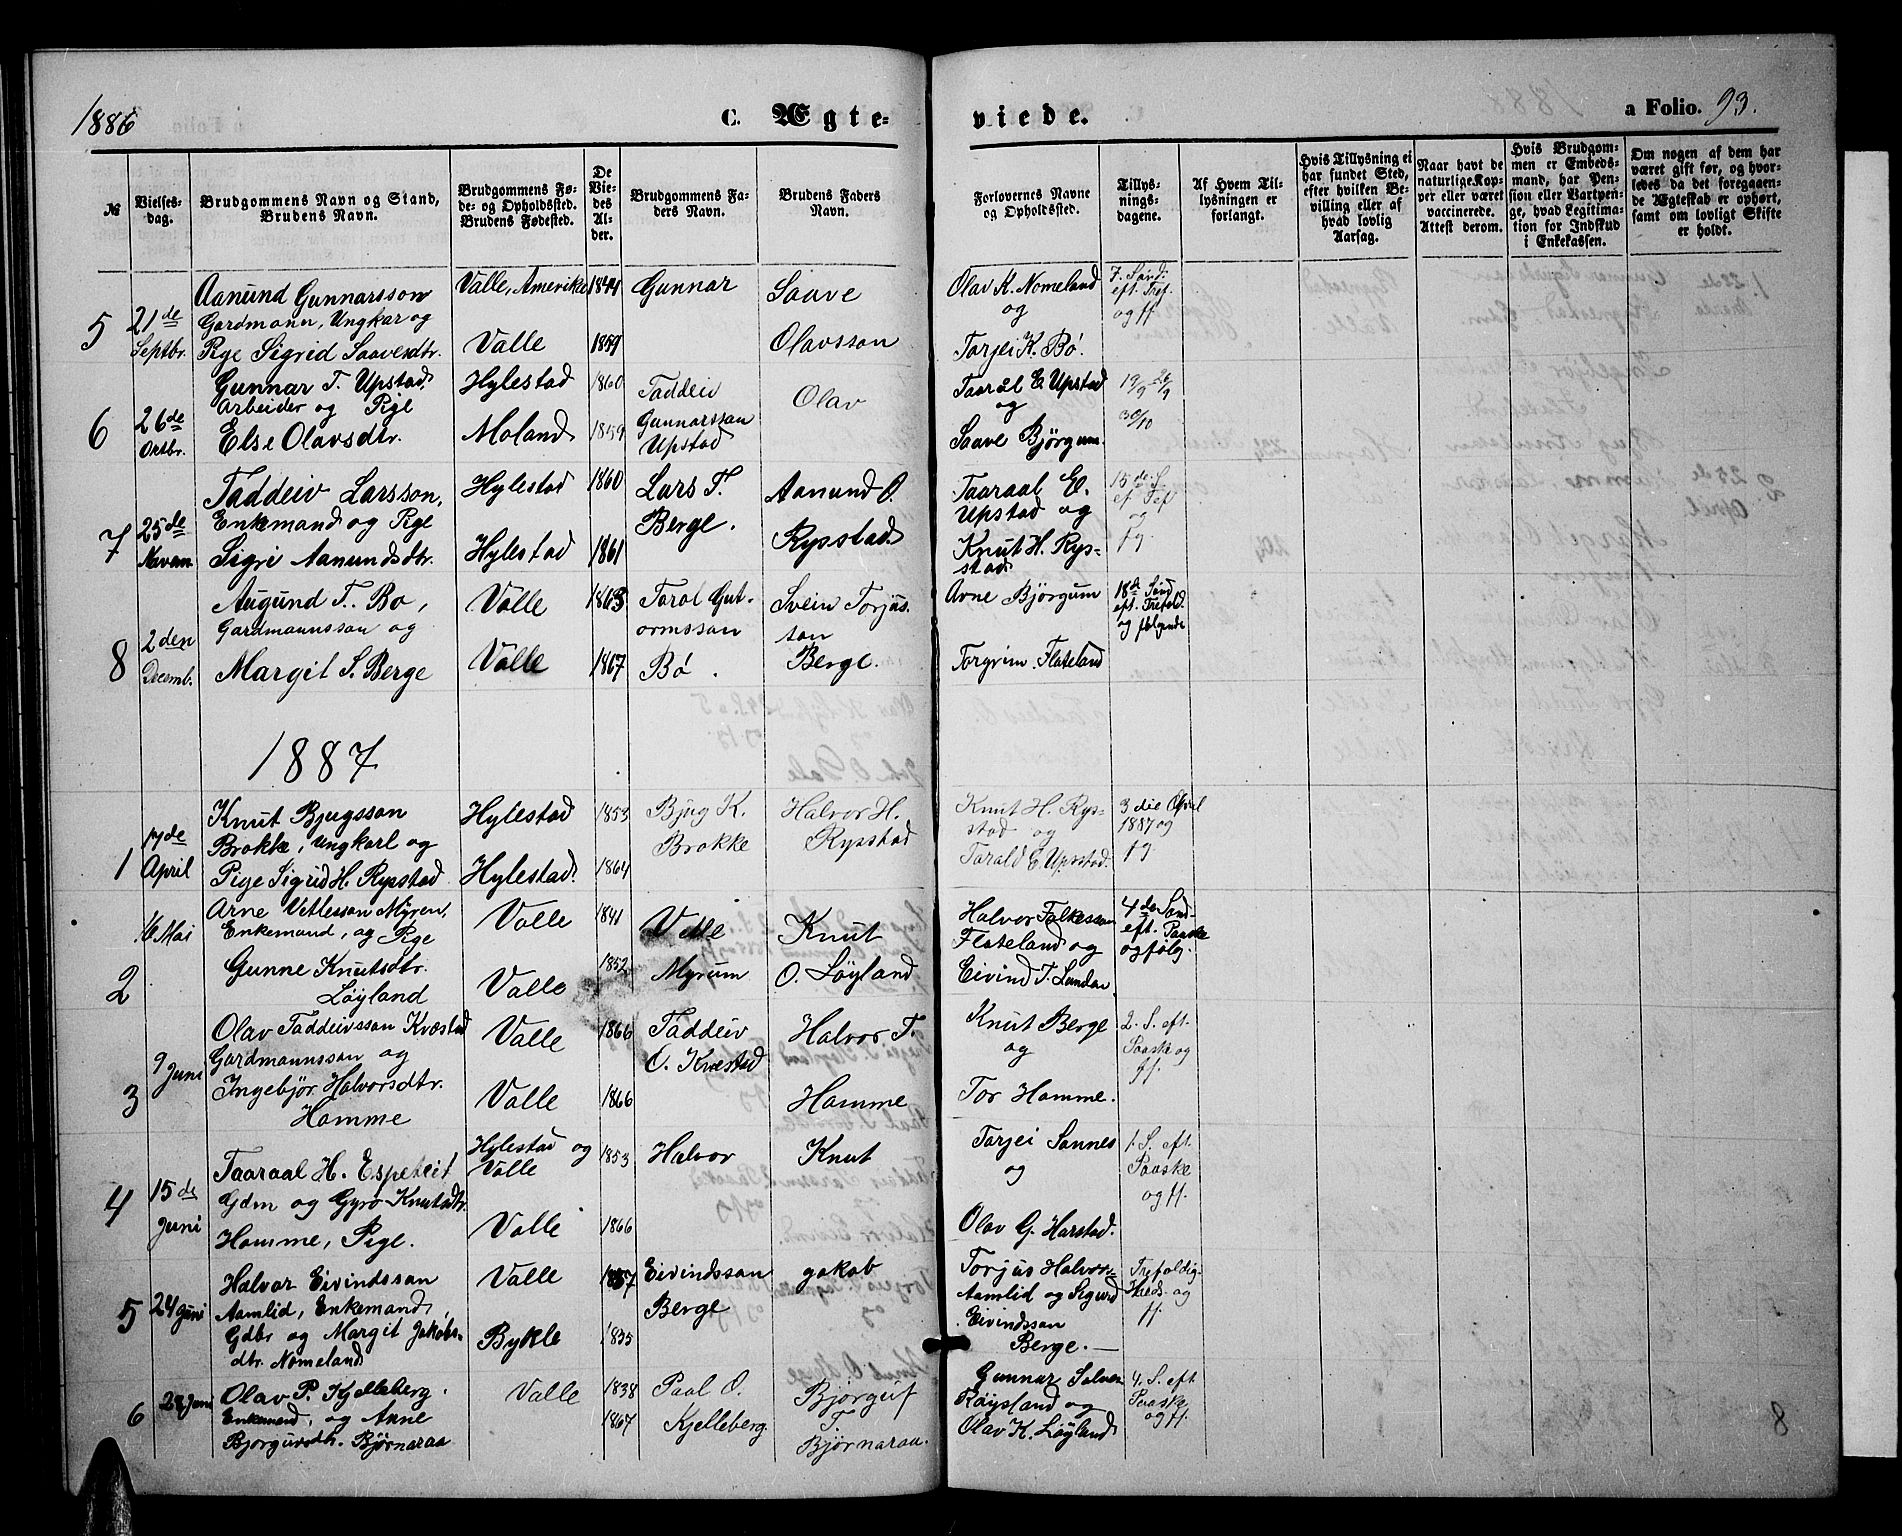 1886
C. Ægte-
viede.
a Folio. 93.
№
Vielses-
dag.
Brudgommens Navn og Stand,
Brudens Navn.
Brudgommens Fø-
de- og Opholdssted.
Brudens Fødested.
De
Vie-
des
Al-
der.
Brudgommens Fa-
ders Navn.
Brudens Faders
Navn.
Forlovernes Navne
og Opholdssted.
Tillys-
nings-
dagene.
Af Hvem Til-
lysningen er
forlangt.
Hvis Tillysning ei
har fundet Sted,
efter hvilken Be-
villing eller af
hvad lovlig
Aarsag.
Naar havt de
naturlige Kop-
per eller været
vaccinerede.
Attest derom.
Hvis Brudgom-
men er Embeds-
mand, har Pen-
sion eller Vartpen-
ge, hvad Legitima-
tion for Indskud
i Enkekassen.
Om nogen af dem har
været gift før, og hvor-
ledes da det foregaaen-
de Ægteskab er ophørt,
samt om lovligt Skifte
er holdt.
5
21de
Septbr.
Aanund Gunnarsson
Gardmann, Ungkar og
Pige Sigrid Saavesdtr.
Valle, Amerika
Valle
1844
1859
Gunnar
Saave
Olavsson
Olav K. Nomeland
og
Torjei K. Bø.
7. Sønd.
eft. Tref.
og ff.
6
26de
Oktbr.
Gunnar T. Upstad,
Arbeider og Pige
Else Olavsdtr.
Hylestad
Moland
1860
1859
Taddeiv
Gunnarsson
Upstad
Olav
Taarål E Upstad
og
Saave Bjørgum.
19/9 26/9
3/10
7
25de
Novem
Taddeiv Larsson,
Enkemand og Pige
Sigri Aanundsdtr.
Hylestad
Hylestad
1860
1861
Lars T.
Berge.
Aanund O.
Rysstad
Taaraal E.
Upstad og
Knut H. Rys-
stad
15de S.
ef Tref
og
fg
8
2den
Decemb.
Augund T. Bø,
Gardmannsson og
Margit S. Berge
Valle
Valle
1863
1867
Tarol Gut-
ormsson
Bø.
Svein Torjus-
son
Berge.
Arne Bjørgum
Torgrim Flateland
18de Sønd
eft. Trefold.
og følgende
1887
1
17de
April
Knut Bjugsson
Brokke, Ungkarl og
Pige Sigrid H. Rysstad
Hylestad
Hylestad.
1853
1864
Bjug K.
Brokke
Halvor H.
Rysstad
Knut H. Rys-
stad og
Tarald E Upstad.
3die April
1887 og
fg
2
16 Mai
Arne Vetlesson Myren,
Enkemand, og Pige
Gunne Knutsdtr.
Løyland
Valle
Valle
1841
1852
Vetle
Myrum
Knut
O. Løyland
Halvor Folkesson
Flateland og
Eivind T. Lunden
4de Sønd-
eft. Paaske
og følg.
3
9 Juni
Olav Taddeivsson Kvæstad
Gardmannsson og
Ingebjør Halvorsdtr.
Homme
Valle
Valle
1866
1866
Taddeiv
O. Kvæstad
Halvor T.
Homme
Knut Berge
og
Tor Homme.
2. S. eft.
Paaske og
ff.
4
15de
Juni
Taaraal H. Espeteit
Gdm og Gyro Knutsdtr.
Homme, Pige.
Hylestad og
Valle
Valle
1853
1866
Halvor
Knut
Torjei Sannes
og
Olav G. Harstad.
1. S. eft.
Paaske
og ff.
5
24 Juni
Halvor Eivindsson
Aamlid, Enkemand,
Gdbr og Margit Jakobs-
dtr. Nomeland
Valle
Bykle
1857
1835
Eivindsson
Berge
Jakob
Torjus Halvors-
Aamlid og Sigurd
Eivindsson
Berge.—
Trefoldig-
heds- og
ff.
6
28 Juni
Olav P. Kjelleberg.
Enkemand, og Anne
Bjorgursdtr. Bjørnaraa
Valle
1838
1867
Paal O.
Kjelleberg.
Bjørguf
T.
Bjørnaraa.
Gunnar Salven
Røysland og
Olav K. Løyland
4. S. eft
Paaske
og ff.
8